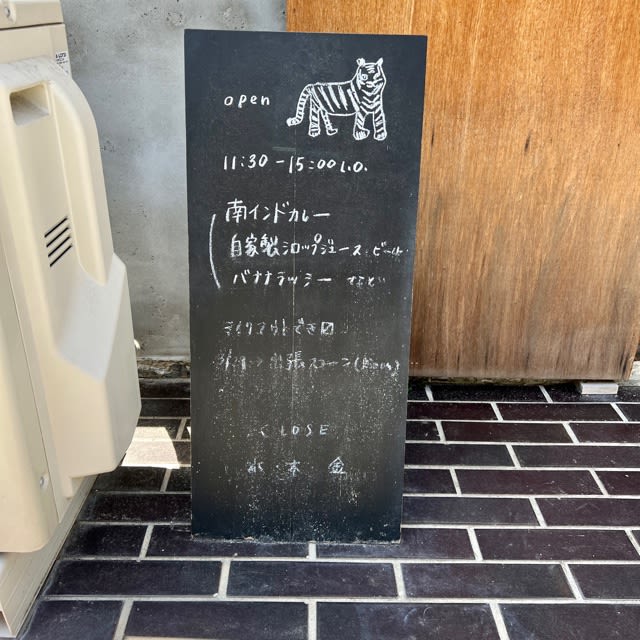 open
11:30 - 15:00 L.O.
南インドカレー
自家製シロップジュース・ビール
バナナラッシー などなど
出張スコーン
CLOSE
水 木 金